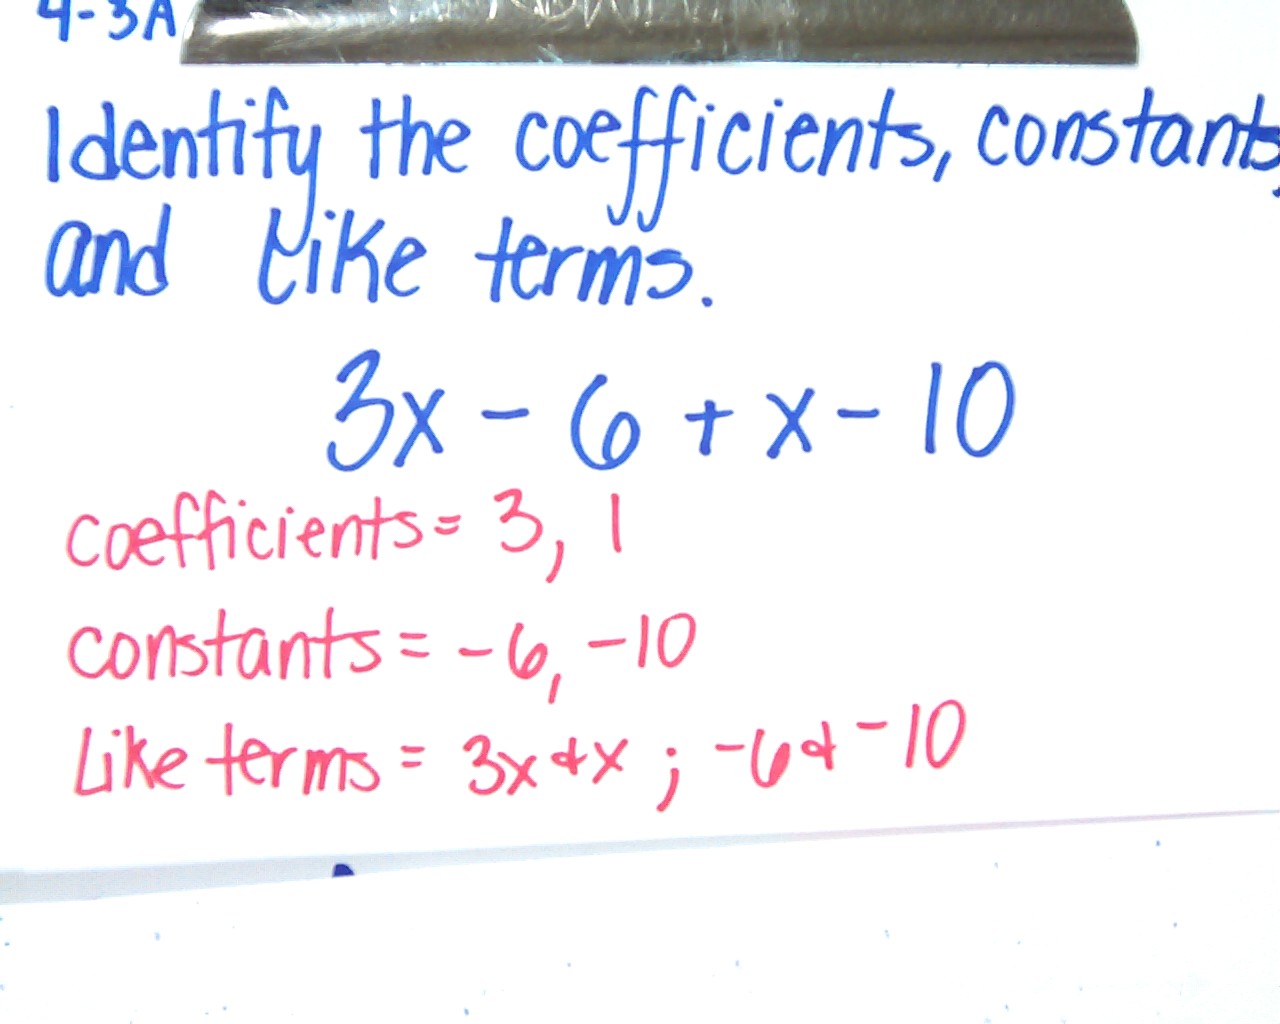 4-3A
Identify the coefficients, constants,
and like terms.
3x - 6 + x - 10
coefficients = 3, 1
constants = -6, -10
Like terms = 3x & x ; -6 & -10